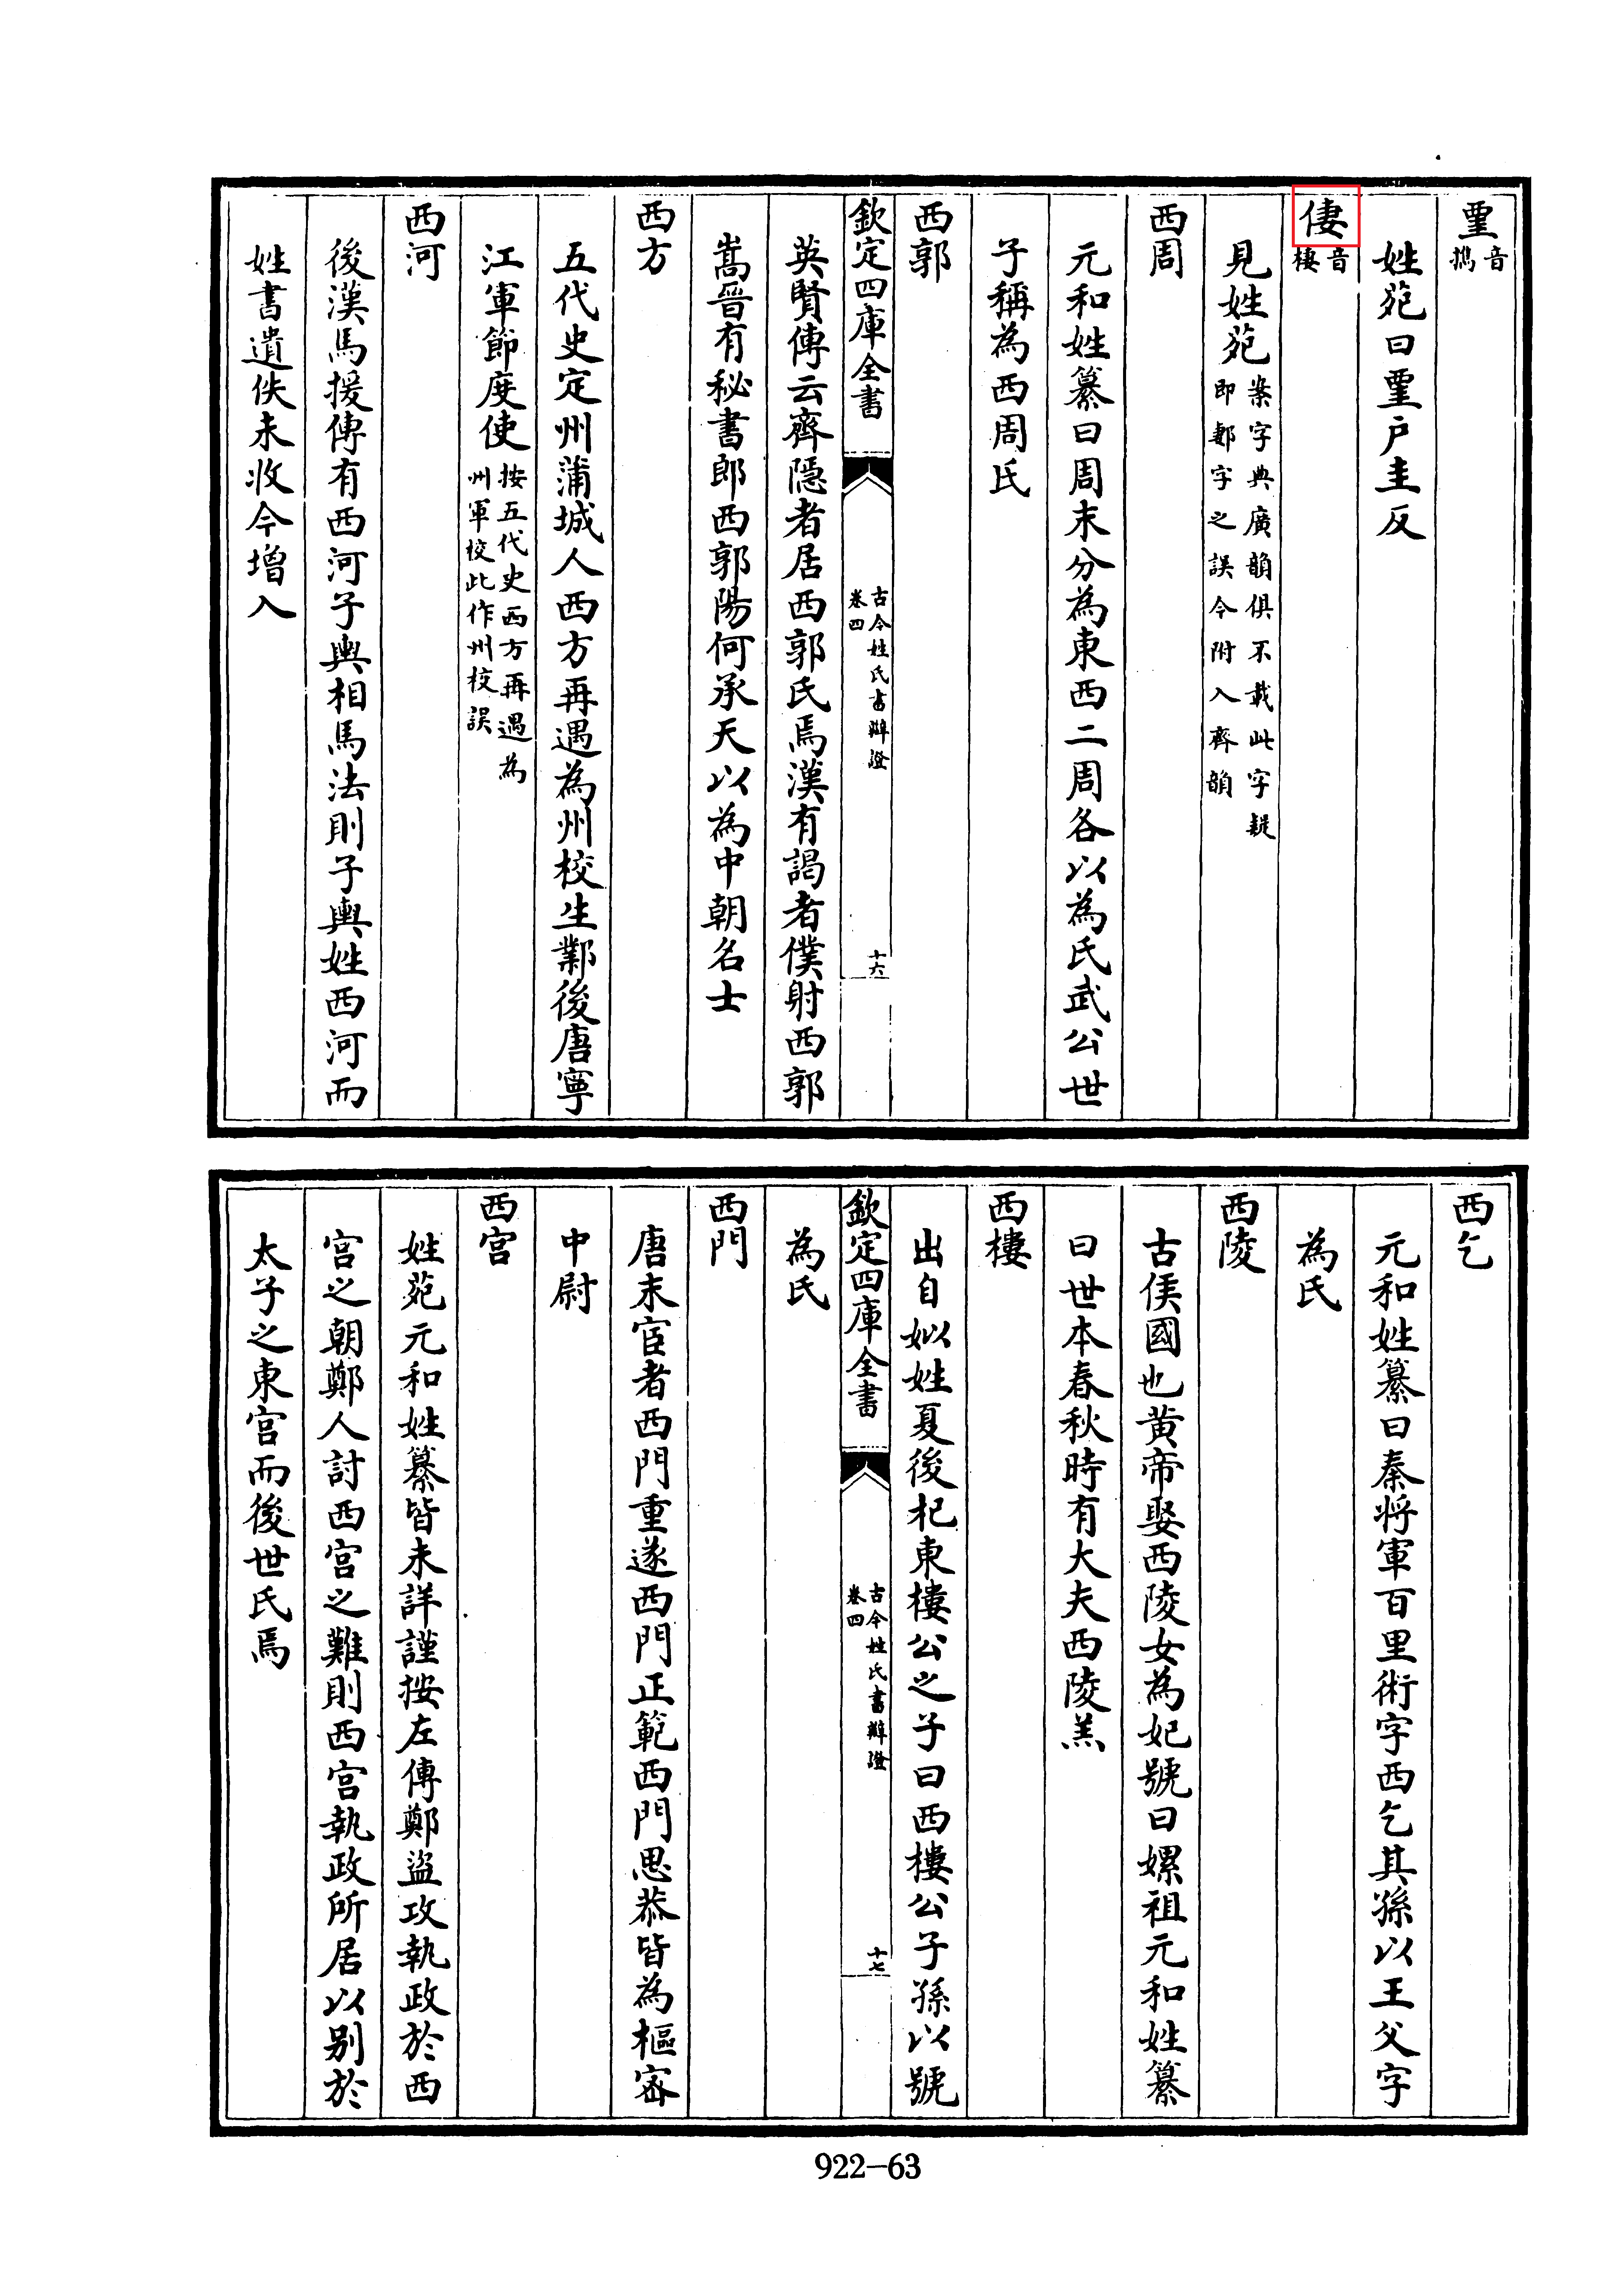 㔒音攜
姓苑曰㔒戶圭反
㑦音棲
見姓苑案字典廣韻俱不載此字疑即郪字之誤今附入齊韻
西周
元和姓纂曰周末分為東西二周各以為氏武公世
子稱為西周氏
西郭
欽定四庫全書
古今姓氏書辯證
卷四
十六
英賢傳云齊隱者居西郭氏焉漢有謁者僕射西郭
嵩晉有秘書郎西郭陽何承天以為中朝名士
西方
五代史定州蒲城人西方再遇為州校生鄴後唐寧
江軍節度使按五代史西方再遇為州軍校此作州校誤
西河
後漢馬援傳有西河子輿相馬法則子輿姓西河而
姓書遺佚未收今增入
西乞
元和姓纂曰秦將軍百里術字西乞其孫以王父字
為氏
西陵
古侯國也黄帝娶西陵女為妃號曰嫘祖元和姓纂
曰世本春秋時有大夫西陵羔
西樓
出自姒姓夏後杞東樓公之子曰西樓公子孫以號
欽定四庫全書
古今姓氏書辯證
卷四
十七
為氏
西門
唐末宦者西門重遂西門正範西門思恭皆為樞密
中尉
西宫
姓苑元和姓纂皆未詳謹按左傳鄭盜攻執政於西
宫之朝鄭人討西宫之難則西宫執政所居以别於
太子之東宫而後世氏焉
922-63